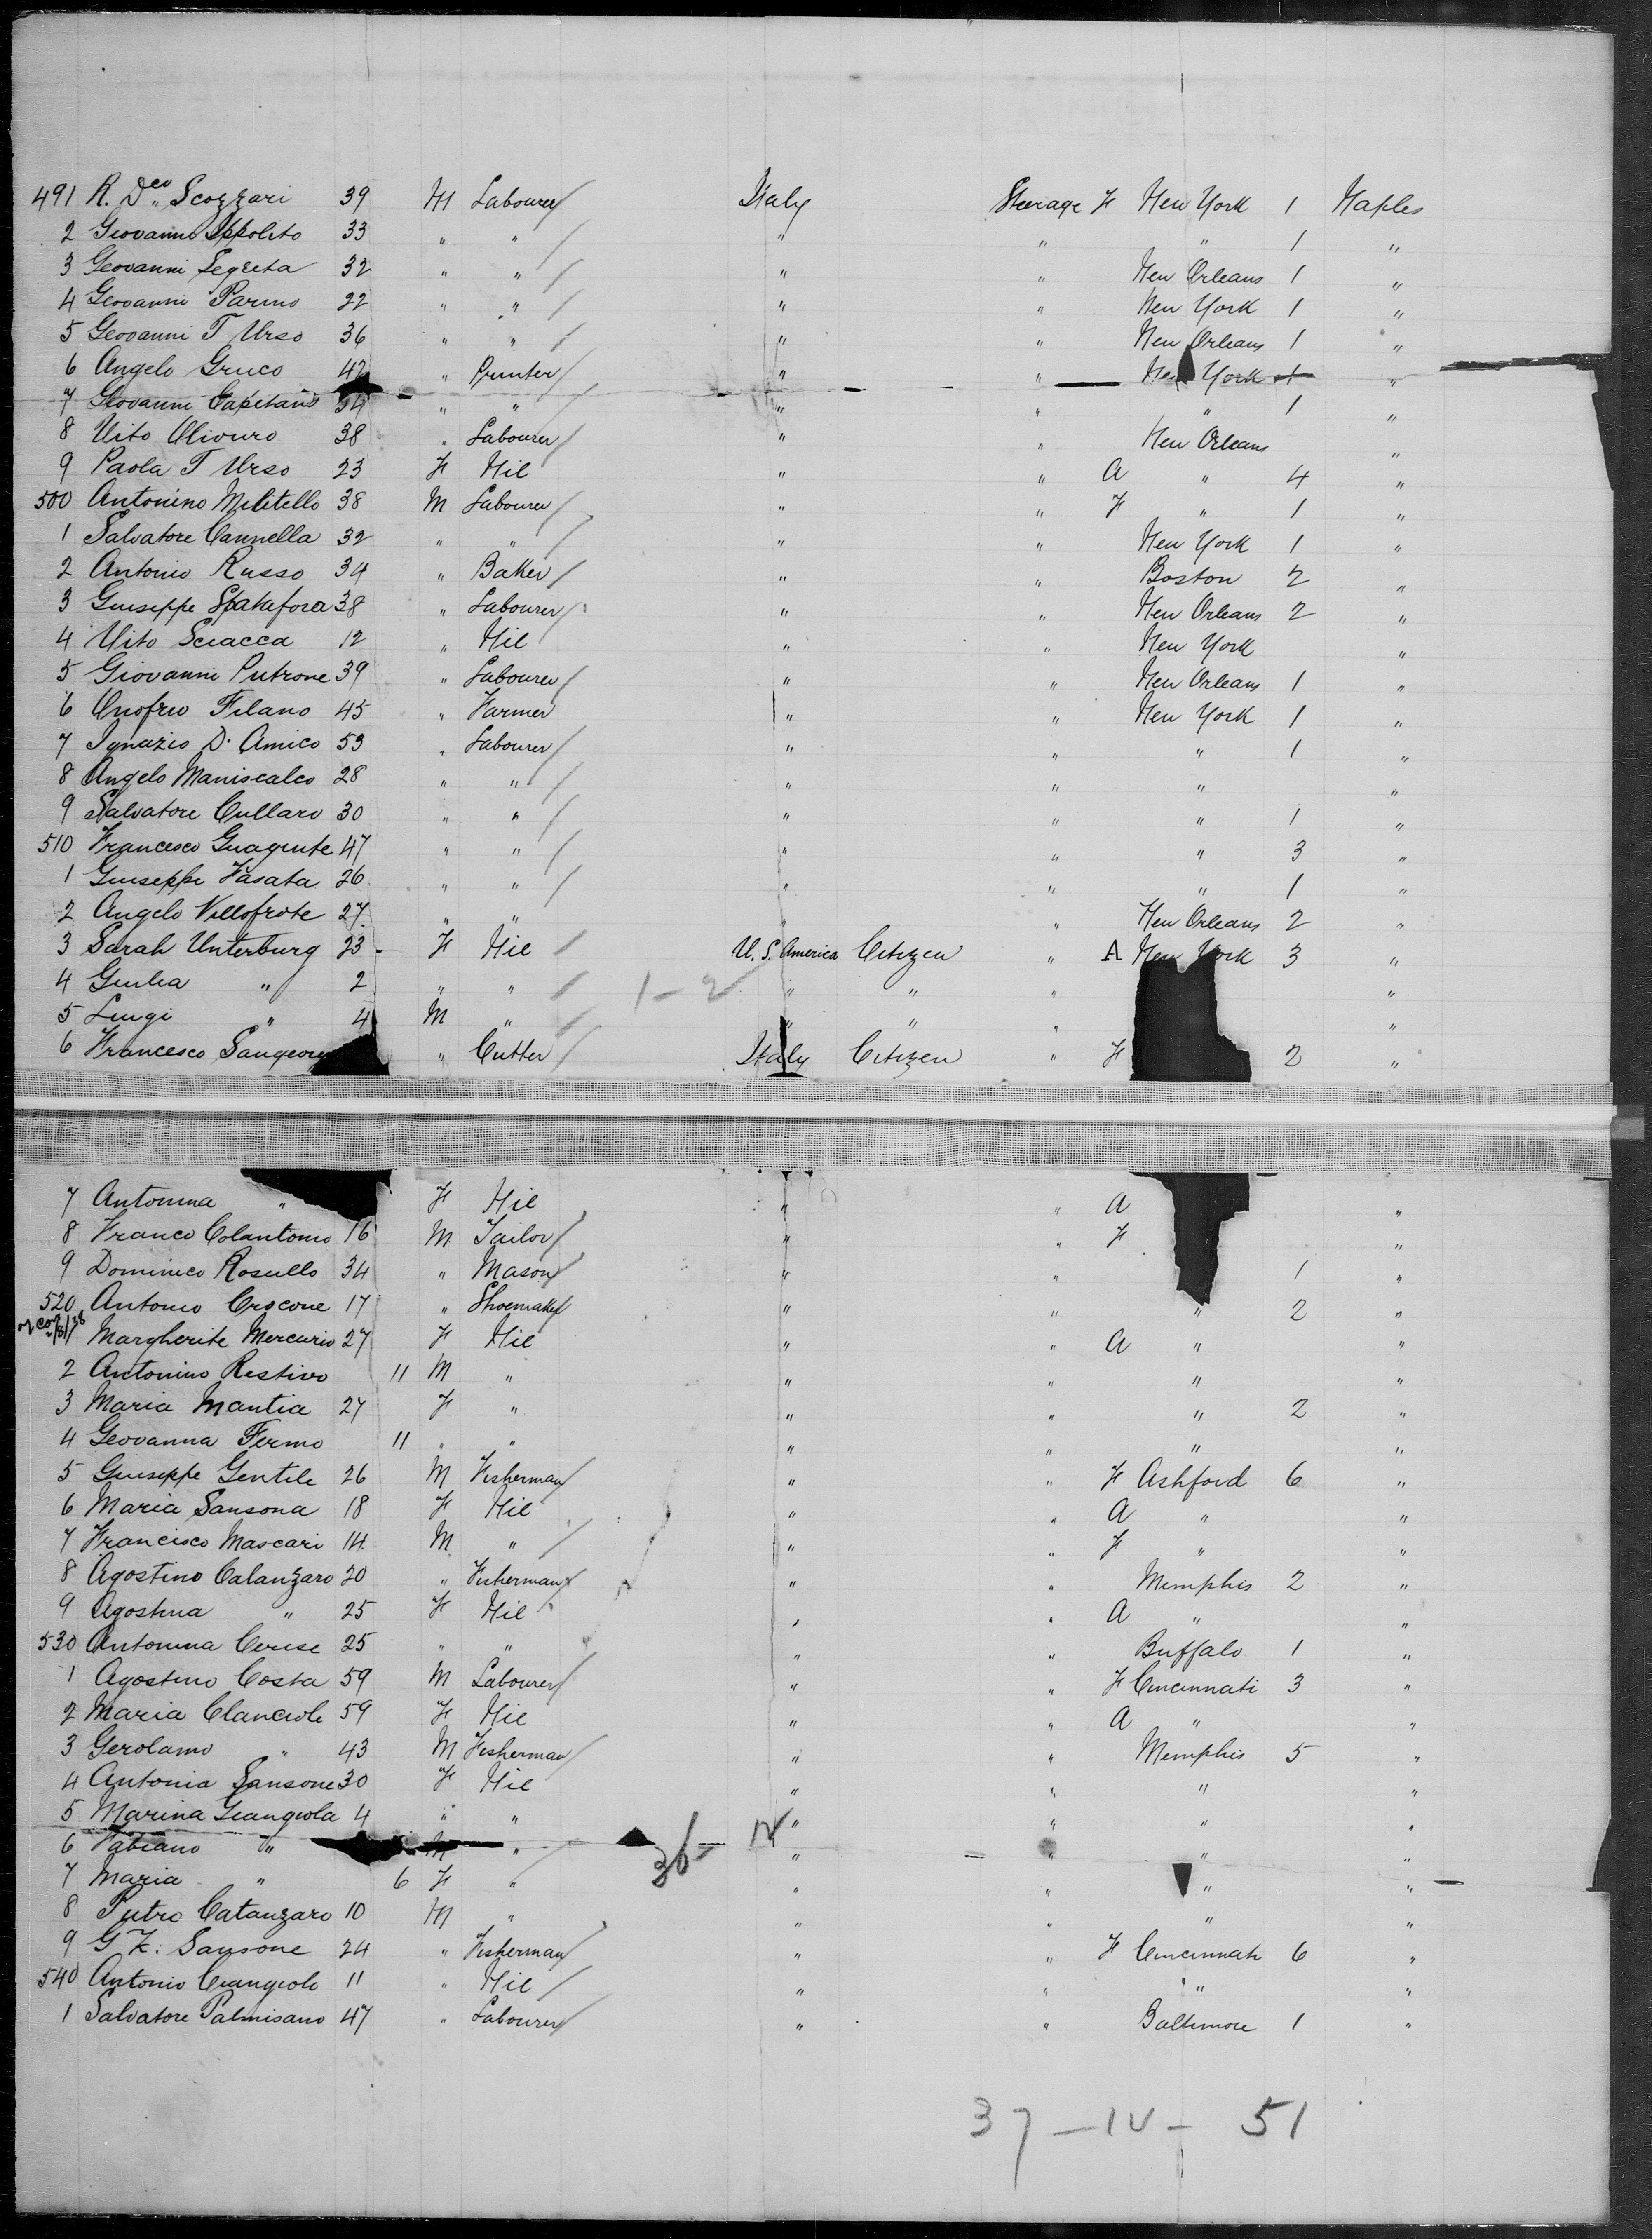 491 R. Dco Scozzari 39 M Labourer Italy Steerage F New York 1 Naples
2 Giovanni Ippolito 33 " " " " " 1 "
3 Geovanni Segreta 32 " " " " New Orleans 1 "
4 Geovanni Parino 22 " " " " New York 1 "
5 Geovanni T Urso 36 " " " " New Orleans 1 "
6 Angelo Gruco 42 " Printer " " New York 1 "
7 Giovanni Capitano 34 " " " " " 1 "
8 Vito Oliouro 38 " Labourer " " New Orleans "
9 Paola T Urso 23 F Nil " " A " 4 "
500 Antonino Militello 38 M Labourer " " F " 1 "
1 Salvatore Cannella 32 " " " " New York 1 "
2 Antonio Russo 34 " Baker " " Boston 2 "
3 Guiseppe Spatafora 38 " Labourer " " New Orleans 2 "
4 Vito Sciacca 12 " Nil " " New York "
5 Giovanni Putrone 39 " Labourer " " New Orleans 1 "
6 Onofrio Filano 45 " Farmer " " New York 1 "
7 Ignazio D. Amico 53 " Labourer " " " 1 "
8 Angelo Maniscalco 28 " " " " " "
9 Salvatore Cullaro 30 " " " " " 1 "
510 Francesco Guagente 47 " " " " " 3 "
1 Guiseppe Fasata 26 " " " " " 1 "
2 Angelo Villofrote 27 " " " " New Orleans 2 "
3 Sarah Unterburg 23 F Nil U. S. America Citizen " A New York 3 "
4 Giulia " 2 " " 1-2 " " " "
5 Luigi " 4 M " " " " "
6 Francesco Sangeorg " Cutter Italy Citizen " F 2 "
7 Antonina " F Nil " " A "
8 Franco Colantonio 16 M Tailor " " F "
9 Dominico Rosullo 34 " Mason " " 1 "
520 Antonio Crocone 17 " Shoemaker " " " 2 "
1 Margherite Mercurio 27 F Nil " " A " "
2 Antonino Restivo 11 M " " " " "
3 Maria Mantia 27 F " " " " 2 "
4 Geovanna Fermo 11 " " " " " "
5 Guiseppe Gentile 26 M Fisherman " " F Ashford 6 "
6 Maria Sansona 18 F Nil " " A " "
7 Francisco Mascari 14 M " " " F " "
8 Agostino Catanzaro 20 " Fisherman " " Memphis 2 "
9 Agostina " 25 F Nil " " A " "
530 Antonina Ceruse 25 " " " " Buffalo 1 "
1 Agostino Costa 59 M Labourer " " F Cincinnati 3 "
2 Maria Clanciolo 59 F Nil " " A " "
3 Gerolamo " 43 M Fisherman " " Memphis 5 "
4 Antonia Sansone 30 F Nil " " " "
5 Marina Giangiola 4 " " " " " "
6 Fabiano " M " 36- IV " " " "
7 Maria " 6 F " " " " "
8 Pietro Catanzaro 10 M " " " " "
9 G Z. Sansone 24 " Fisherman " " F Cincinnati 6 "
540 Antonio Ciangiolo 11 " Nil " " " "
1 Salvatore Palmisano 47 " Labourer " " Baltimore 1 "
37 - IV - 51